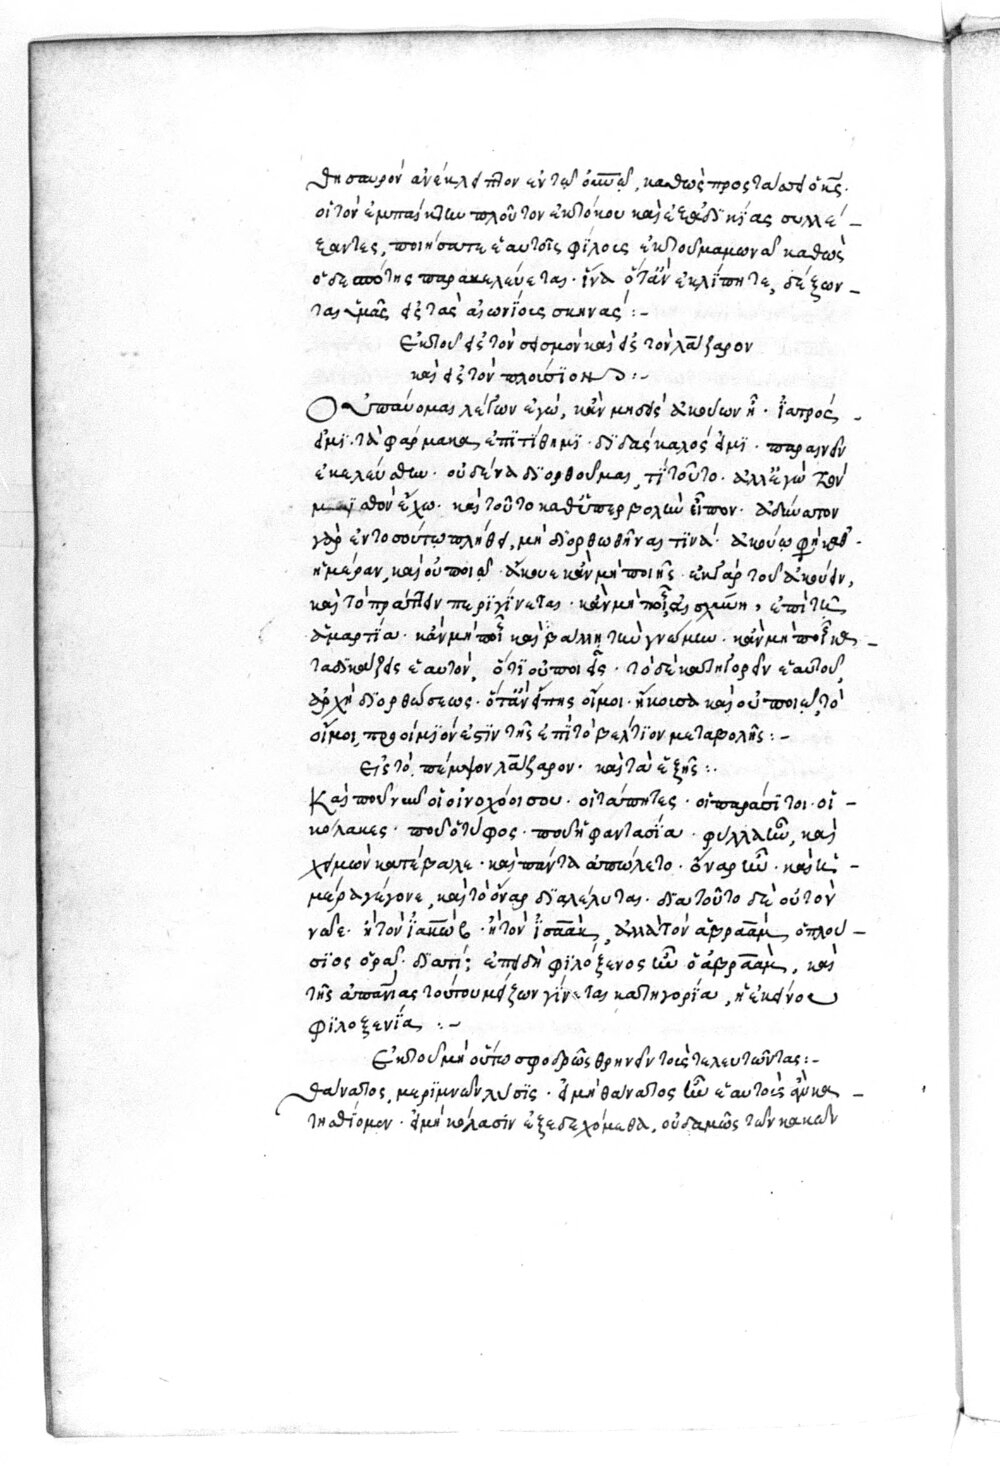 θησαυρὸν ἀνέκλειπτον ἐν τῶ οὐνῶ, καθὼς προστάσσει ὁ κς·
οἱ τὸν ἐμπαίκτην πλοῦτον ἐκ τόκου καὶ ἐξ ἀδικίας συλλέ–
ξαντες, ποιήσατε ἑαυτοῖς φίλους ἐκ τοῦ μαμωνᾶ καθὼς
ὁ δεσπότης παρακελεύεται· ἵνα ὅταν ἐκλίπητε, δέξων–
ται ὑμᾶς εἰς τὰς αἰωνίους σκηνάς :–
Ἐκ τοῦ εἰς τὸν σεισμὸν καὶ εἰς τὸν λάζαρον
καὶ εἰς τὸν πλούσιον :–
Οὐ παύομαι λέγων ἐγώ, κἂν μηδεὶς ἀκούων ἦ· ἰατρός –
εἰμι· τὰ φάρμακα ἐπιτίθημι· διδάσκαλός εἰμι· παραινεῖν
ἐκελεύσθην· οὐδένα διορθοῦμαι, τί τοῦτο· ἀλλ' ἐγὼ τὸν
μισθὸν ἔχω· καὶ τοῦτο καθ' ὑπερβολὴν εἶπον· ἀδύνατον
γὰρ ἐν τοσούτω πλήθει, μὴ διορθωθῆναι τινά· ἀκούω φη καθ' –
ἡμέραν, καὶ οὐ ποιῶ· ἄκουε κἂν μὴ ποιῆς· ἐκ γὰρ τοῦ ἀκούειν,
καὶ τὸ πράττειν περιγίνεται· κἂν μὴ ποιῆς αἰσχύνη, ἐπὶ τῆ
ἁμαρτία· κἂν μὴ ποιῆς μεταβάλλη τὴν γνώμην· κἂν μὴ ποιῆς κα –
ταδικάζεις ἑαυτόν, ὅτι οὐ ποιεῖς· τὸ δὲ κατηγορεῖν ἑαυτοῦ,
ἀρχὴ διορθώσεως· ὅταν εἴπης οἴμοι· ἤκουσα καὶ οὐ ποιῶ, τὸ
οἴμοι, προοίμιόν ἐστιν τῆς ἐπὶ τὸ βέλτιον μεταβολῆς :–
Εἰς τὸ, πέμψον λάζαρον· καὶ τὰ ἑξῆς :·
Καὶ ποῦ νῦν οἱ οἰνοχόοι σου· οἱ τάπητες· οἱ παράσιτοι· οἱ –
κόλακες· ποῦ ὁ τύφος· ποῦ ἡ φαντασία· φύλλα ἦν, καὶ
χειμὼν κατέβαλε· καὶ πάντα ἀπώλετο· ὄναρ ἦν· καὶ ἡ –
μέρα γέγονε, καὶ τὸ ὄναρ διαλέλυται· διατοῦτο δὲ οὐ τὸν
νῶε· ἢ τὸν ἰακώβ· ἢ τὸν ἰσαάκ, ἀλλὰ τὸν ἀβραάμ ὁ πλού –
σιος ὁρᾶ· διατί; ἐπειδὴ φιλόξενος ἦν ὁ ἀβραάμ, καὶ
τῆς ἀπανίας τούτου μείζων γίνεται κατηγορία, ἡ ἐκείνου
φιλοξενία :–
Ἐκ τοῦ μὴ οὕτω σφοδρῶς θρηνεῖν τοὺς τελευτῶντας :–
θάνατος, μεριμνῶν λύσις· εἰ μὴ θάνατος ἦν ἑαυτοὺς ἂν κα –
τησθίομεν· εἰ μὴ κόλασιν ἐξεδεχόμεθα, οὐδαμῶς τῶν κακῶν